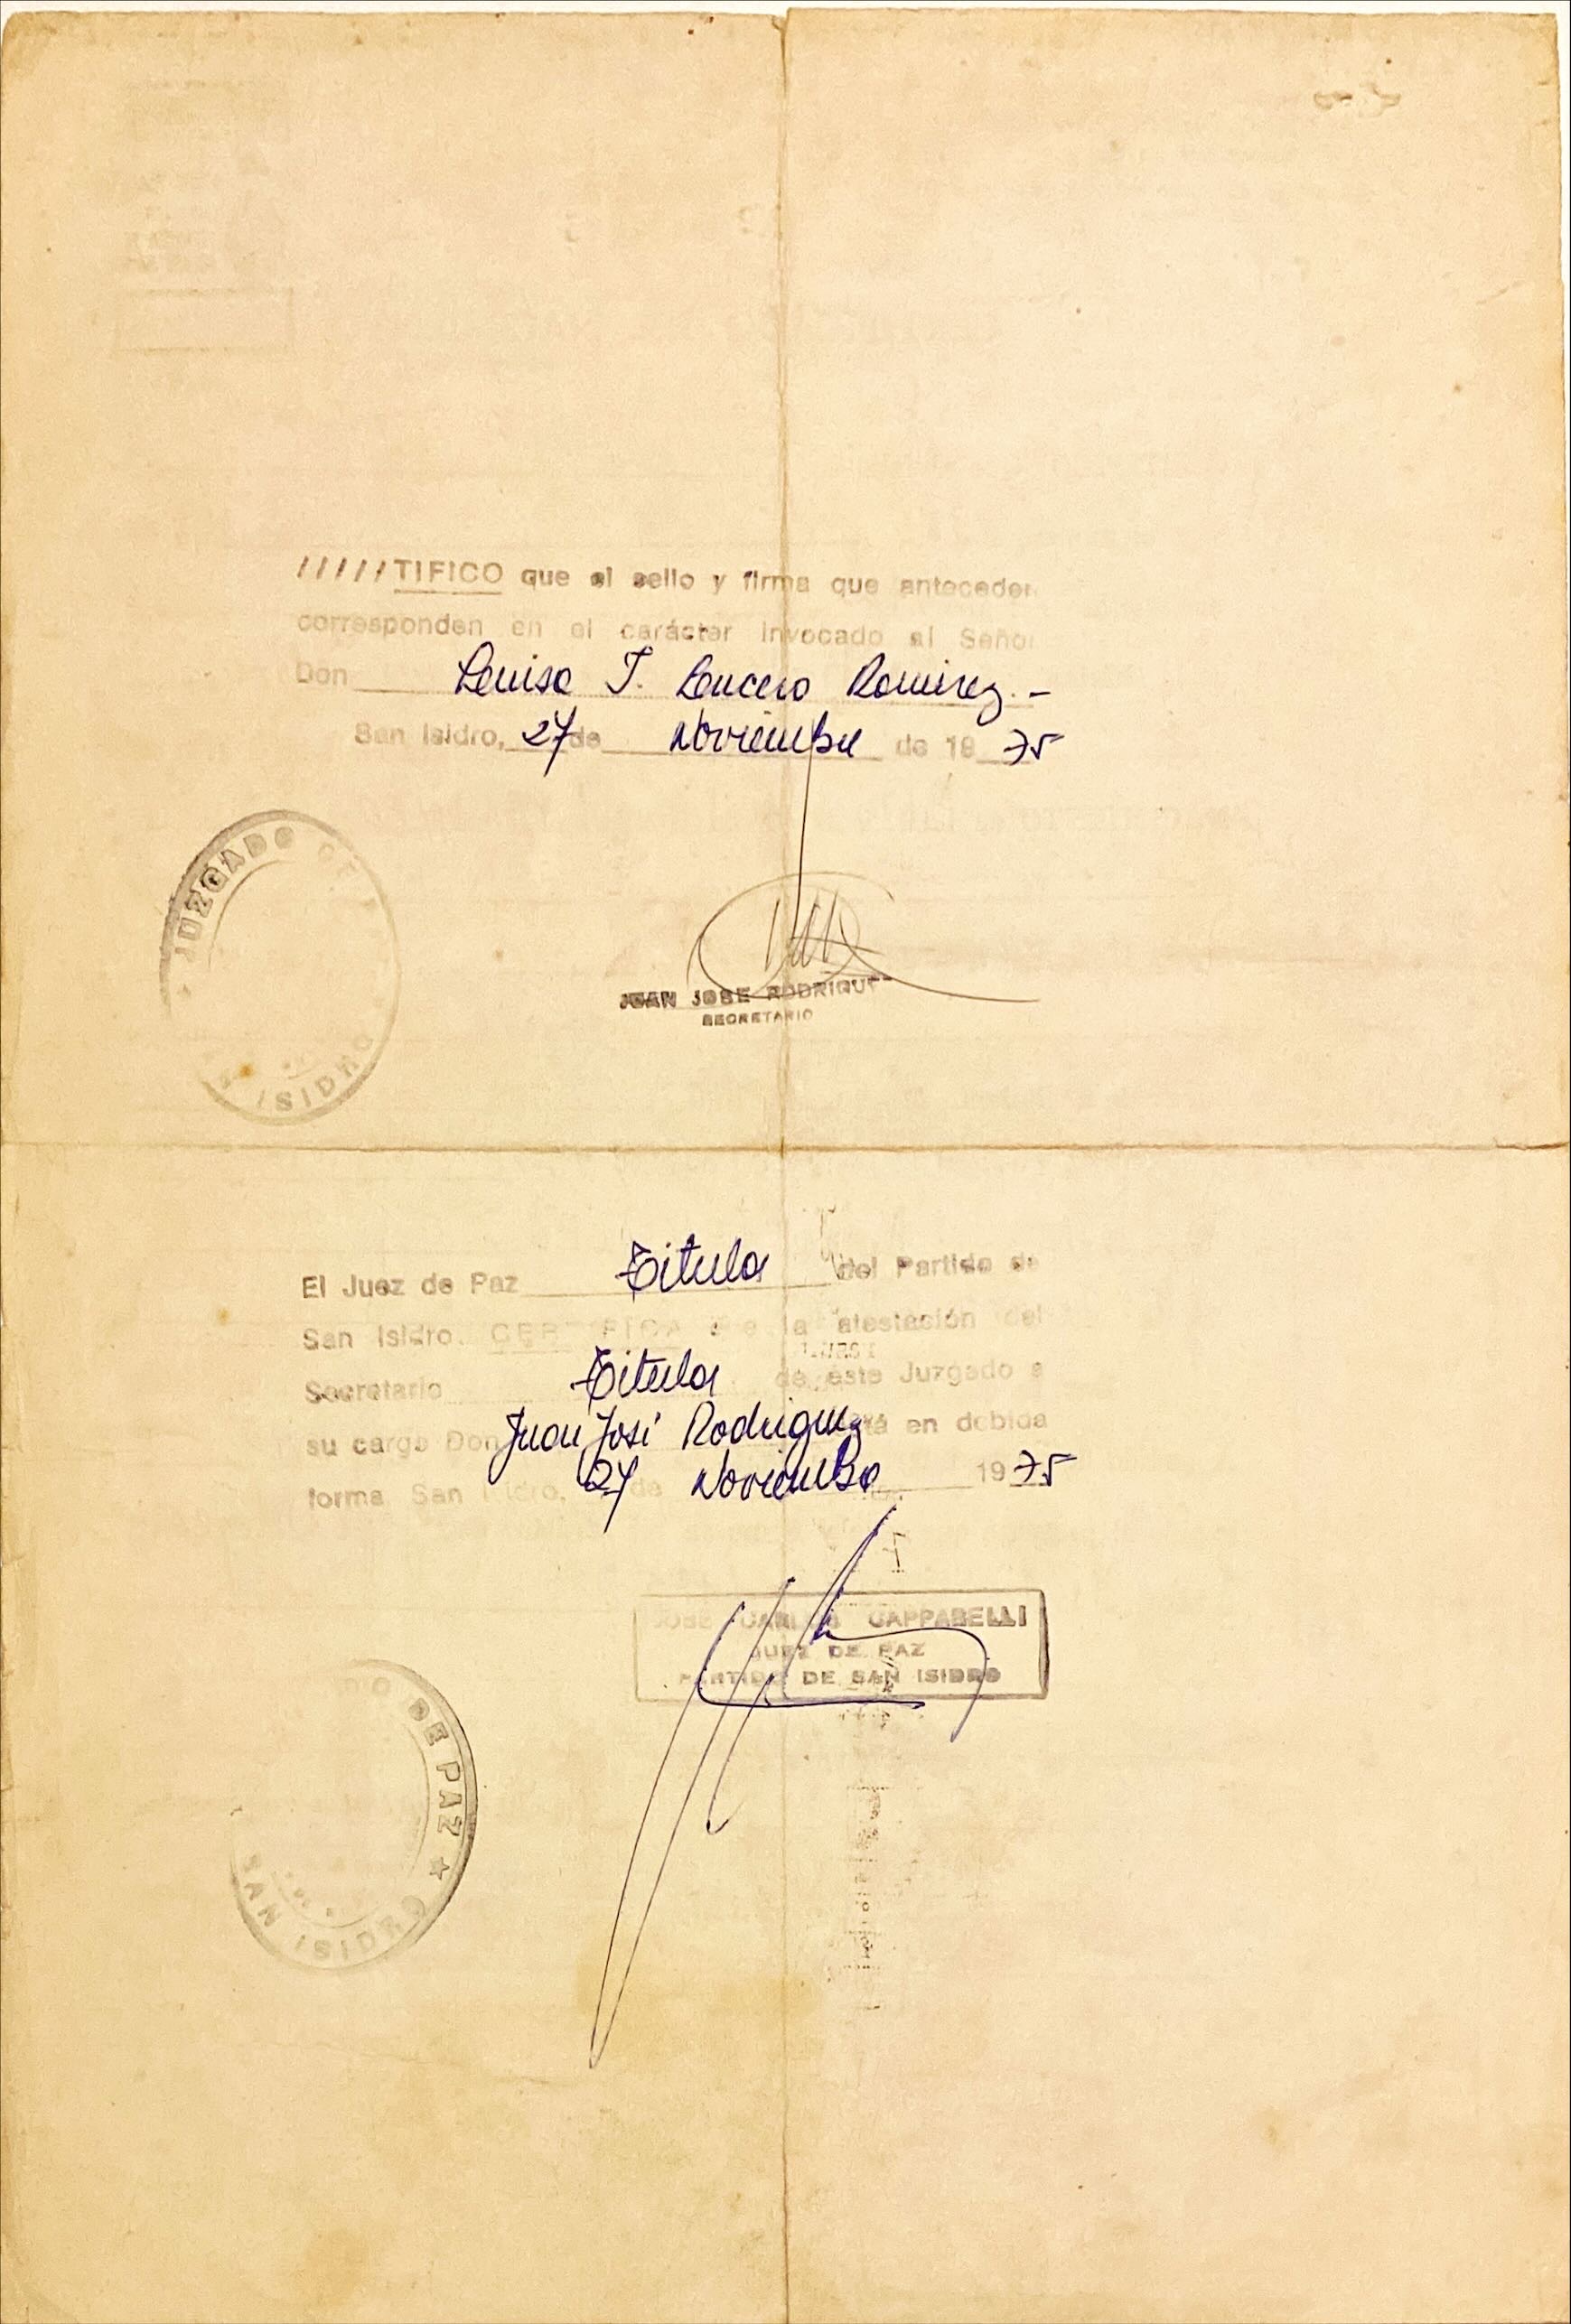 /////TIFICO que el sello y firma que anteceden
corresponden en el carácter invocado al Señor
Don Luisa T. Lucero Ramirez.-
San Isidro, 27 de Noviembre de 19 75
JUZGADO DE
ISIDRO
JUAN JOSE RODRIGUE
SECRETARIO
El Juez de Paz Titular del Partido de
San Isidro. CERTIFICA que la atestación del
Secretario Titular de este Juzgado a
su cargo Don Juan José Rodriguez está en debida
forma. San Isidro, 27 de Noviembre 19 75
JOSE CARLOS CAPPABELLI
JUEZ DE PAZ
PARTIDO DE SAN ISIDRO
DO DE PAZ
SAN ISIDRO